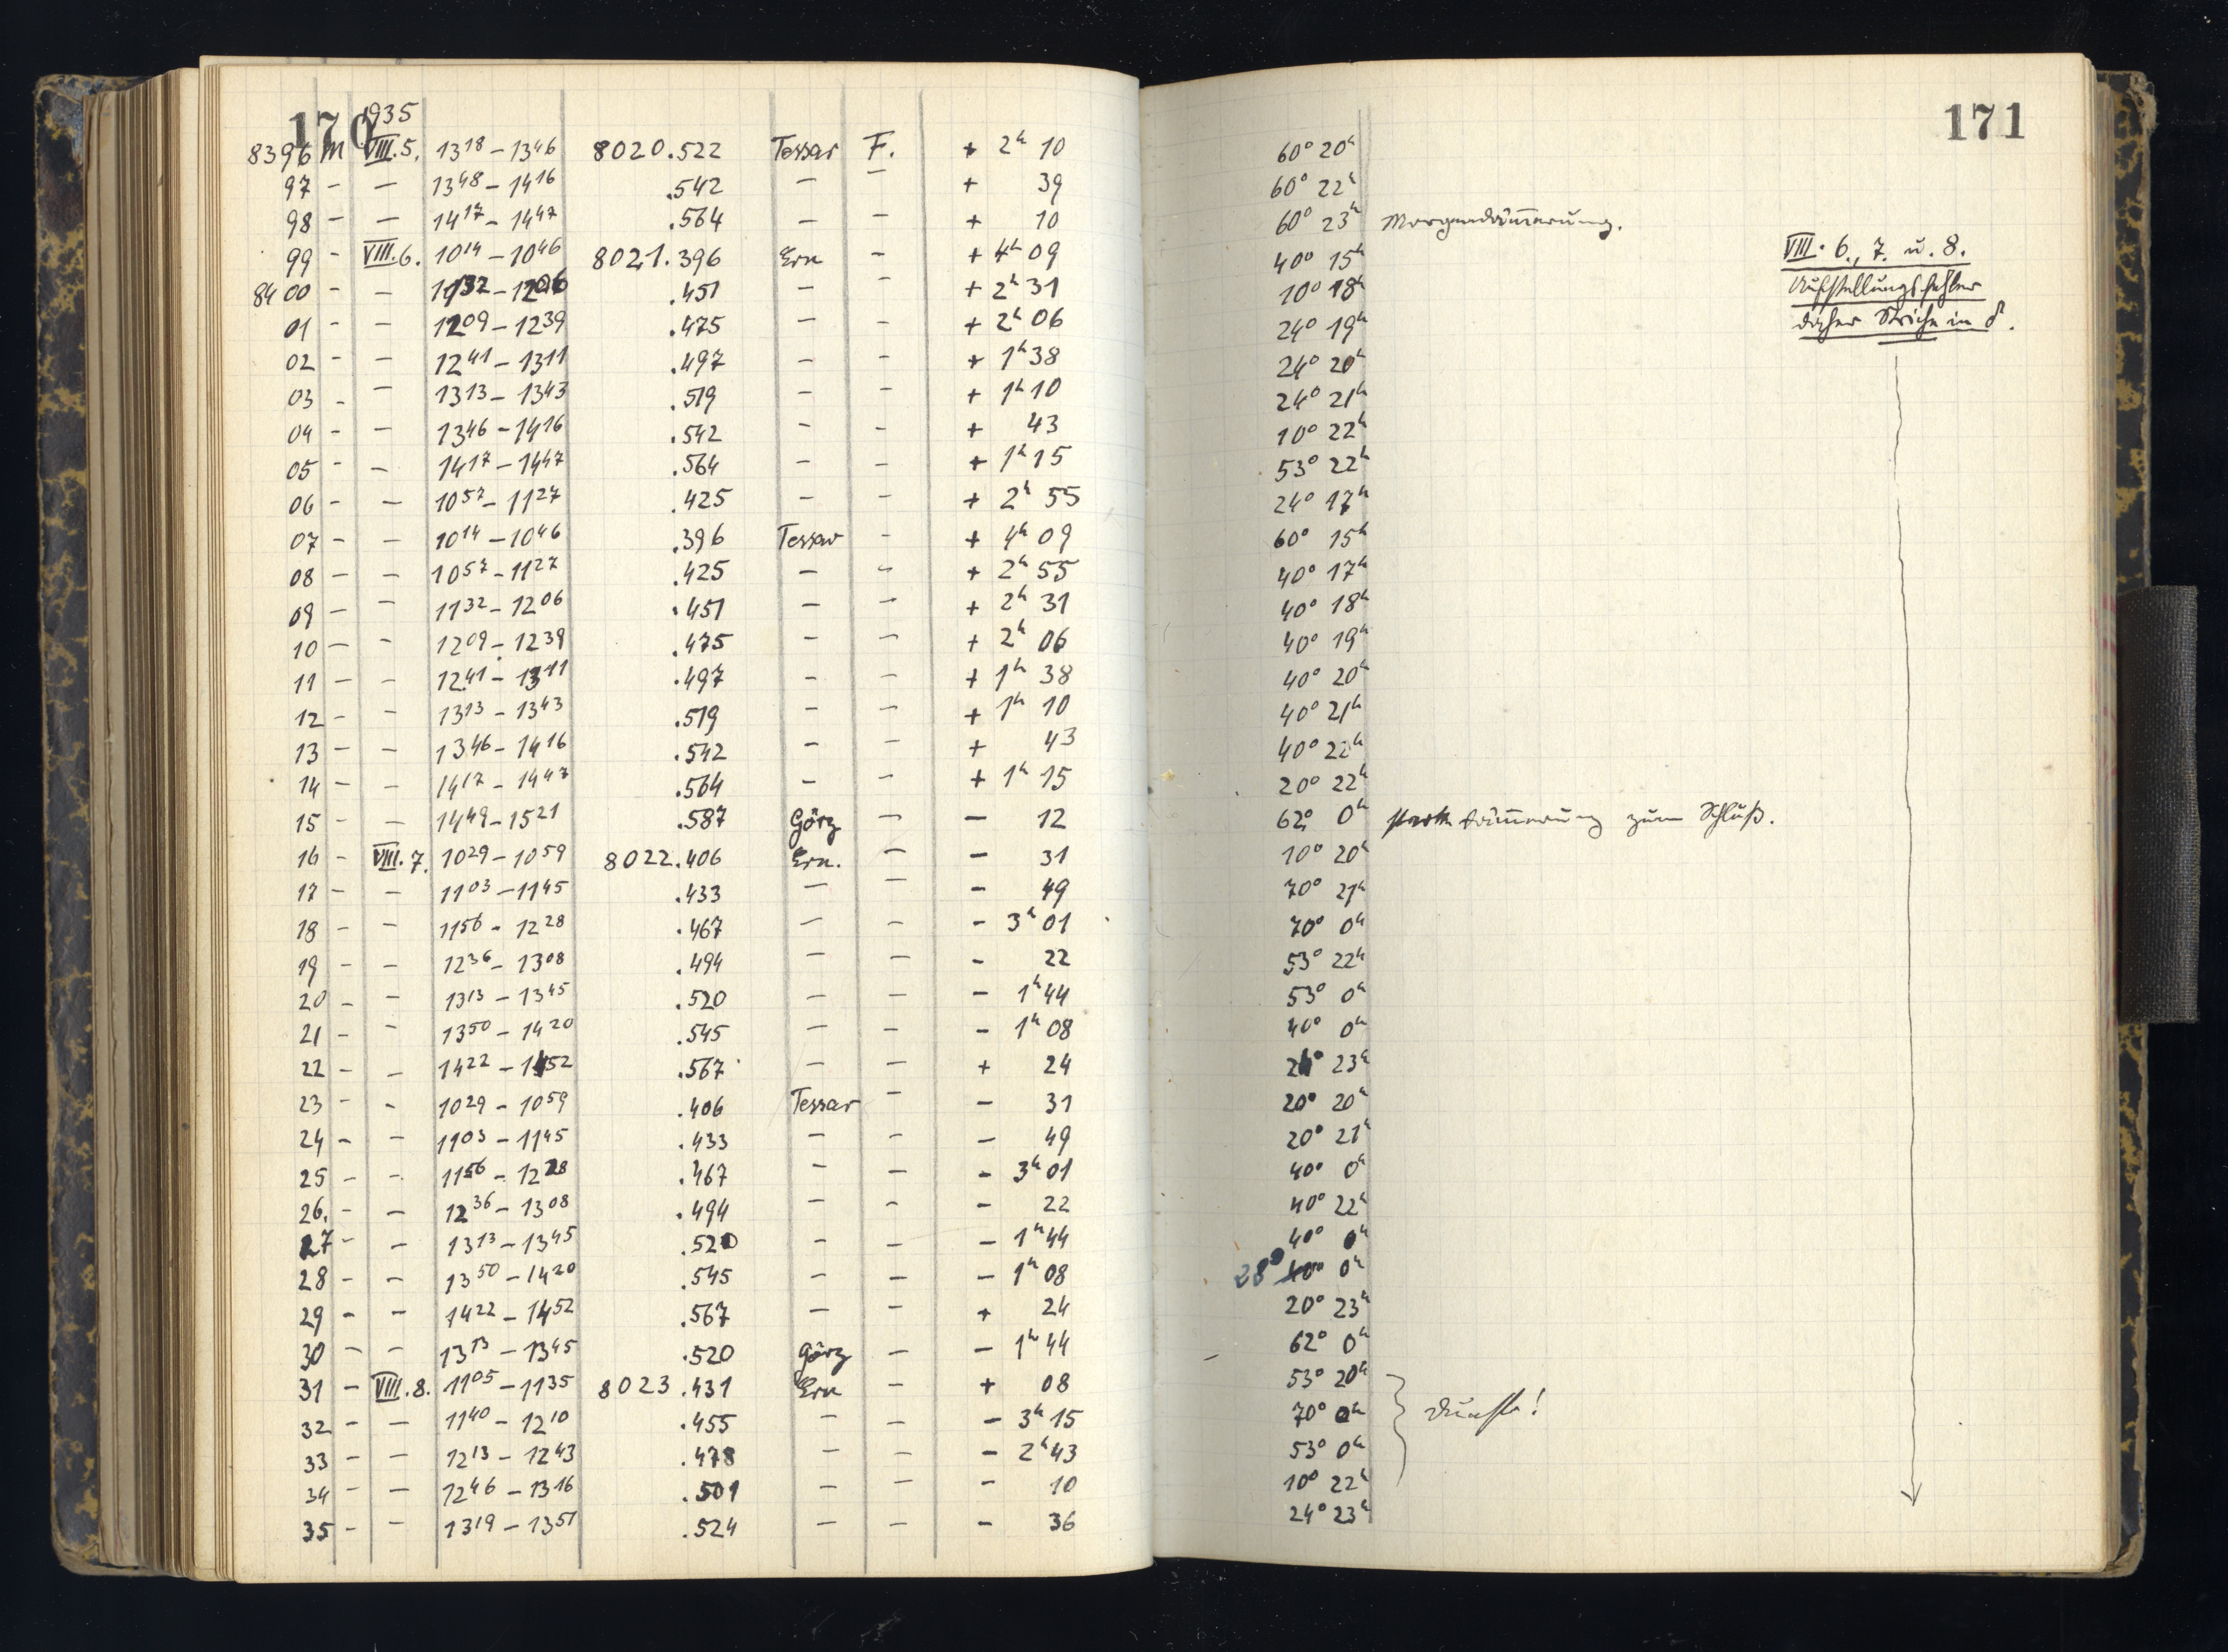 170
1935
8396 M VIII.5. 13 18 – 13 46 8020.522 Tessar F. + 2h 10 60° 20h
97 – – 13 48 – 14 16 .542 – – + 39 60° 22h
98 – – 14 17 – 14 47 .564 – – + 10 60° 23h Morgendämmerung.
99 – VIII.6. 10 14 – 10 46 8021.396 Ern – + 4h 09 40° 15h
8400 – – 11 32 – 12 06 .451 – – + 2h 31 10° 18h
01 – – 12 09 – 12 39 .475 – – + 2h 06 24° 19h
02 – – 12 41 – 13 11 .497 – – + 1h 38 24° 20h
03 – – 13 13 – 13 43 .519 – – + 1h 10 24° 21h
04 – – 13 46 – 14 16 .542 – – + 43 10° 22h
05 – – 14 17 – 14 47 .564 – – + 1h 15 53° 22h
06 – – 10 57 – 11 27 .425 – – + 2h 55 24° 17h
07 – – 10 14 – 10 46 .396 Tessar – + 4h 09 60° 15h
08 – – 10 57 – 11 27 .425 – – + 2h 55 40° 17h
09 – – 11 32 – 12 06 .451 – – + 2h 31 40° 18h
10 – – 12 09 – 12 39 .475 – – + 2h 06 40° 19h
11 – – 12 41 – 13 11 .497 – – + 1h 38 40° 20h
12 – – 13 13 – 13 43 .519 – – + 1h 10 40° 21h
13 – – 13 46 – 14 16 .542 – – + 43 40° 22h
14 – – 14 17 – 14 47 .564 – – + 1h 15 20° 22h
15 – – 14 49 – 15 21 .587 Görz – – 12 62° 0h starke Dämmerung zum Schluß.
16 – VIII.7. 10 29 – 10 59 8022.406 Ern. – – 31 10° 20h
17 – – 11 03 – 11 45 .433 – – – 49 70° 21h
18 – – 11 56 – 12 28 .467 – – – 3h 01 70° 0h
19 – – 12 36 – 13 08 .494 – – – 22 53° 22h
20 – – 13 13 – 13 45 .520 – – – 1h 44 53° 0h
21 – – 13 50 – 14 20 .545 – – – 1h 08 40° 0h
22 – – 14 22 – 14 52 .567 – – + 24 24° 23h
23 – – 10 29 – 10 59 .406 Tessar – – 31 20° 20h
24 – – 11 03 – 11 45 .433 – – – 49 20° 21h
25 – – 11 56 – 12 28 .467 – – – 3h 01 40° 0h
26. – – 12 36 – 13 08 .494 – – – 22 40° 22h
27 – – 13 13 – 13 45 .520 – – – 1h 44 40° 0h
28 – – 13 50 – 14 20 .545 – – – 1h 08 28° 40° 0h
29 – – 14 22 – 14 52 .567 – – + 24 20° 23h
30 – – 13 13 – 13 45 .520 Görz – – 1h 44 62° 0h
31 – VIII.8. 11 05 – 11 35 8023.431 Ern – + 08 53° 20h
32 – – 11 40 – 12 10 .455 – – – 3h 15 70° 0h Dunst!
33 – – 12 13 – 12 43 .478 – – – 2h 43 53° 0h
34 – – 12 46 – 13 16 .501 – – – 10 10° 22h
35 – – 13 19 – 13 51 .524 – – – 36 24° 23h
171
VIII. 6., 7. u. 8.
Aufstellungsfehler
daher Striche in δ.